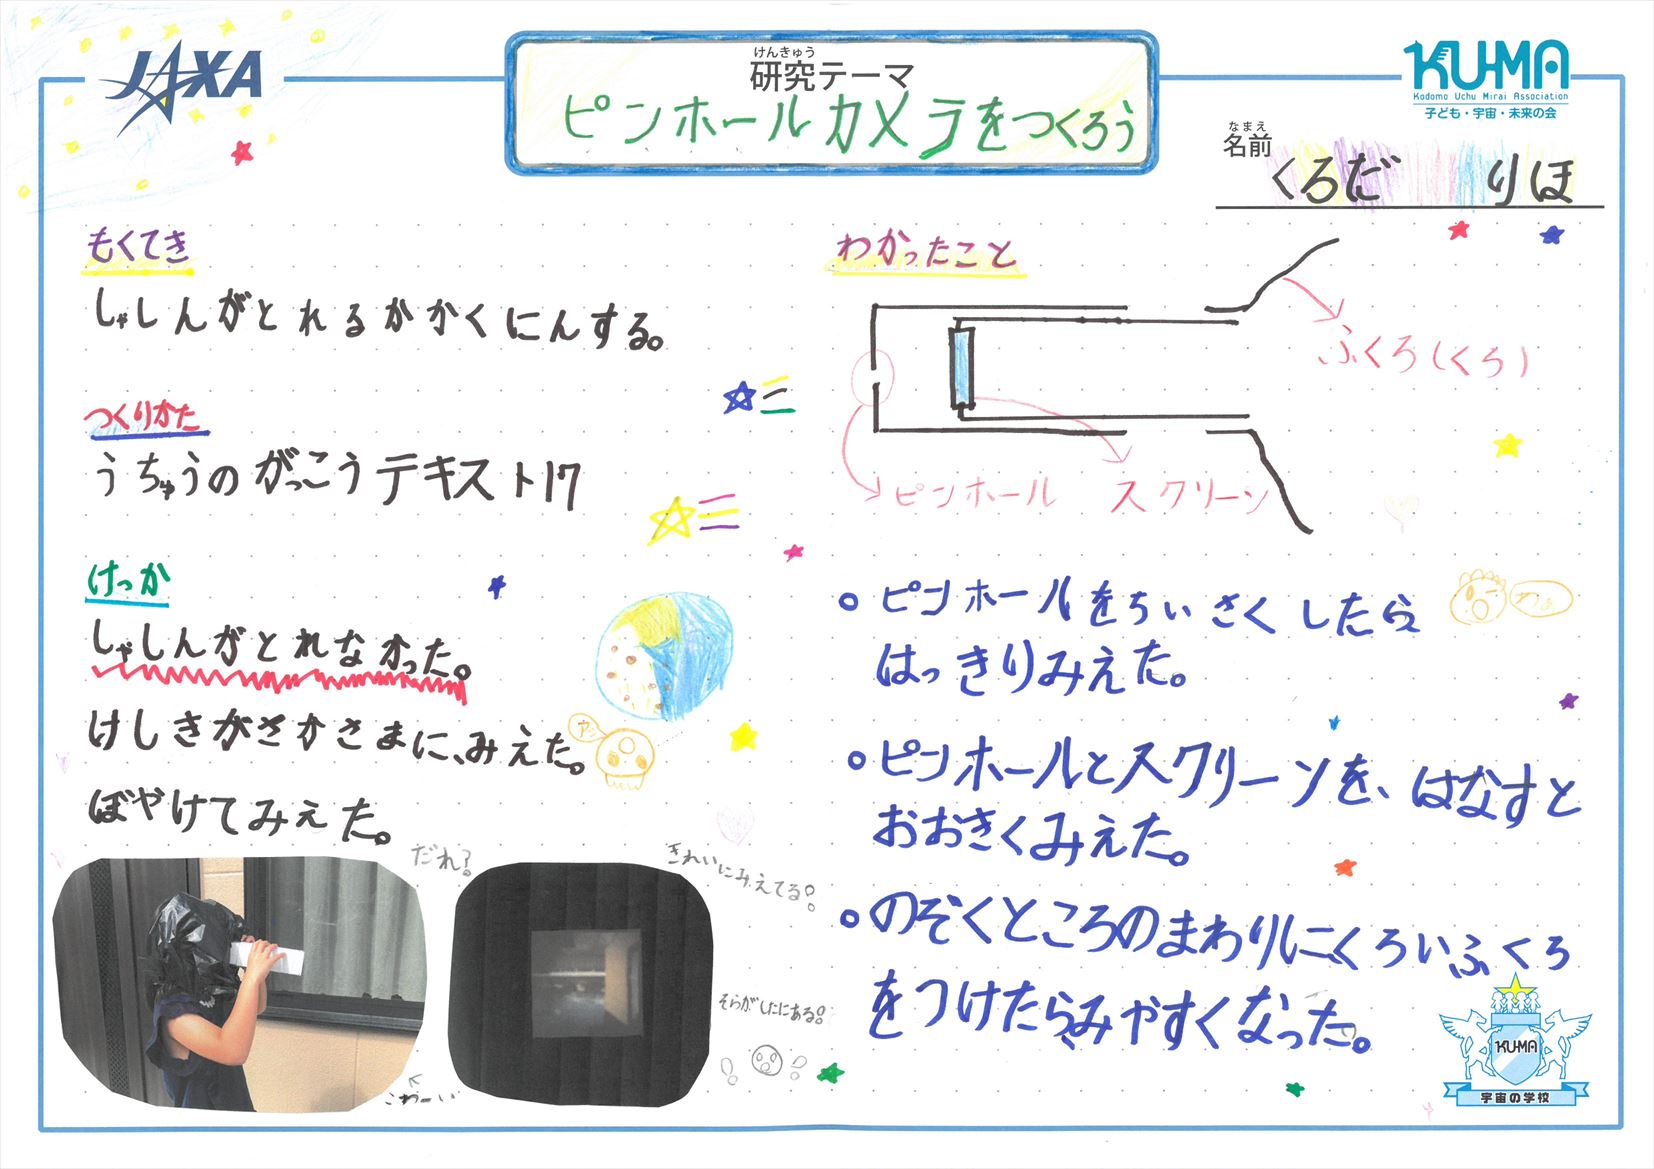 JAXA
けんきゅう
研究テーマ
ピンホールカメラをつくろう
KU-MA
Kodomo Uchu Mirai Association
子ども・宇宙・未来の会
なまえ
名前
くろだ りほ
もくてき
しゃしんがとれるかかくにんする。
つくりかた
うちゅうのがっこうテキスト17
けっか
しゃしんがとれなかった。
けしきがさかさまに、みえた。
ぼやけてみえた。
だれ?
こわーい
きれいにみえてる!
そらがしたにある!
わかったこと
ふくろ(くろ)
ピンホール スクリーン
ピンホールをちいさくしたら
はっきりみえた。
ピンホールとスクリーンを、はなすと
おおきくみえた。
のぞくところのまわりにくろいふくろ
をつけたら、みやすくなった。
KU-MA
宇宙の学校